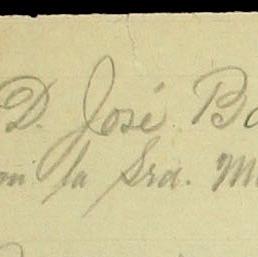 D. José Ba
on la Srd. M